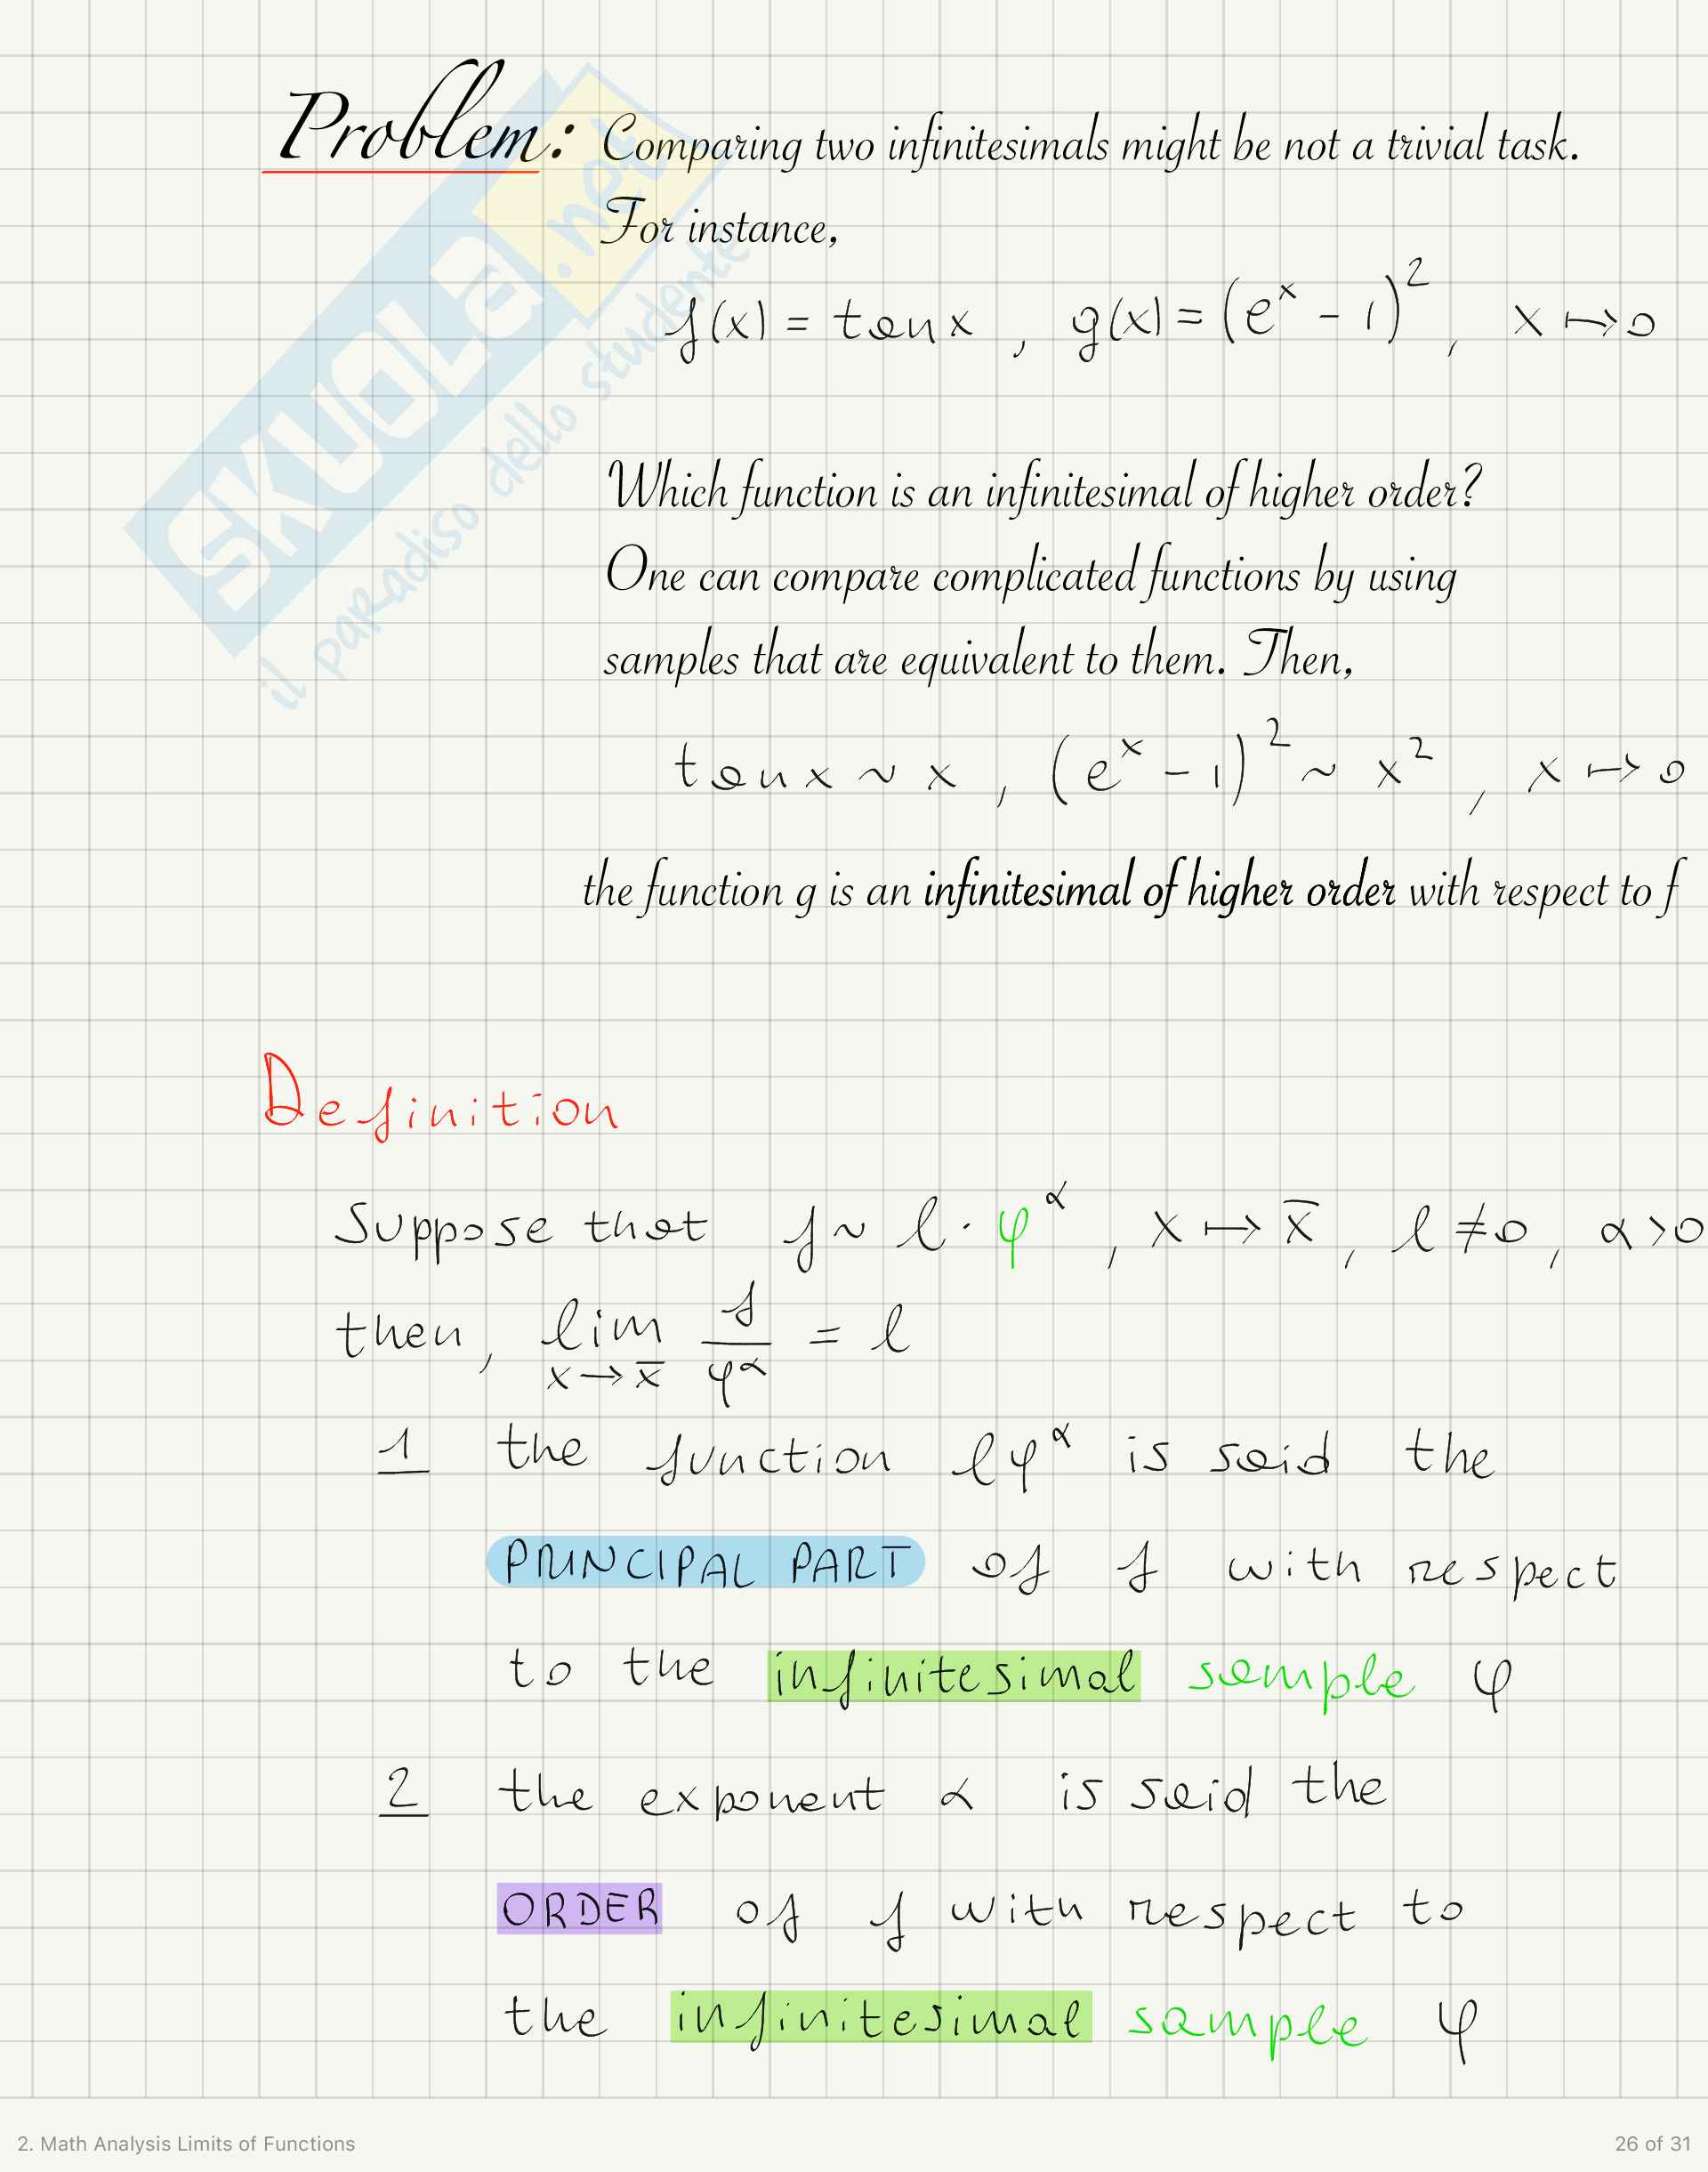 Problem: Comparing two infinitesimals might be not a trivial task.
For instance,
f(x) = tan x , g(x) = (e^x - 1)^2 , x ↦ 0
Which function is an infinitesimal of higher order?
One can compare complicated functions by using
samples that are equivalent to them. Then,
tan x ~ x , (e^x - 1)^2 ~ x^2 , x ↦ 0
the function g is an infinitesimal of higher order with respect to f
Definition
Suppose that f ~ l · φ^α , x ↦ x̅ , l ≠ 0 , α > 0
then, lim x→x̅ f/φ^α = l
1 the function lφ^α is said the
PRINCIPAL PART of f with respect
to the infinitesimal sample φ
2 the exponent α is said the
ORDER of f with respect to
the infinitesimal sample φ
SKUOLA.net
il paradiso dello studente
2. Math Analysis Limits of Functions
26 of 31